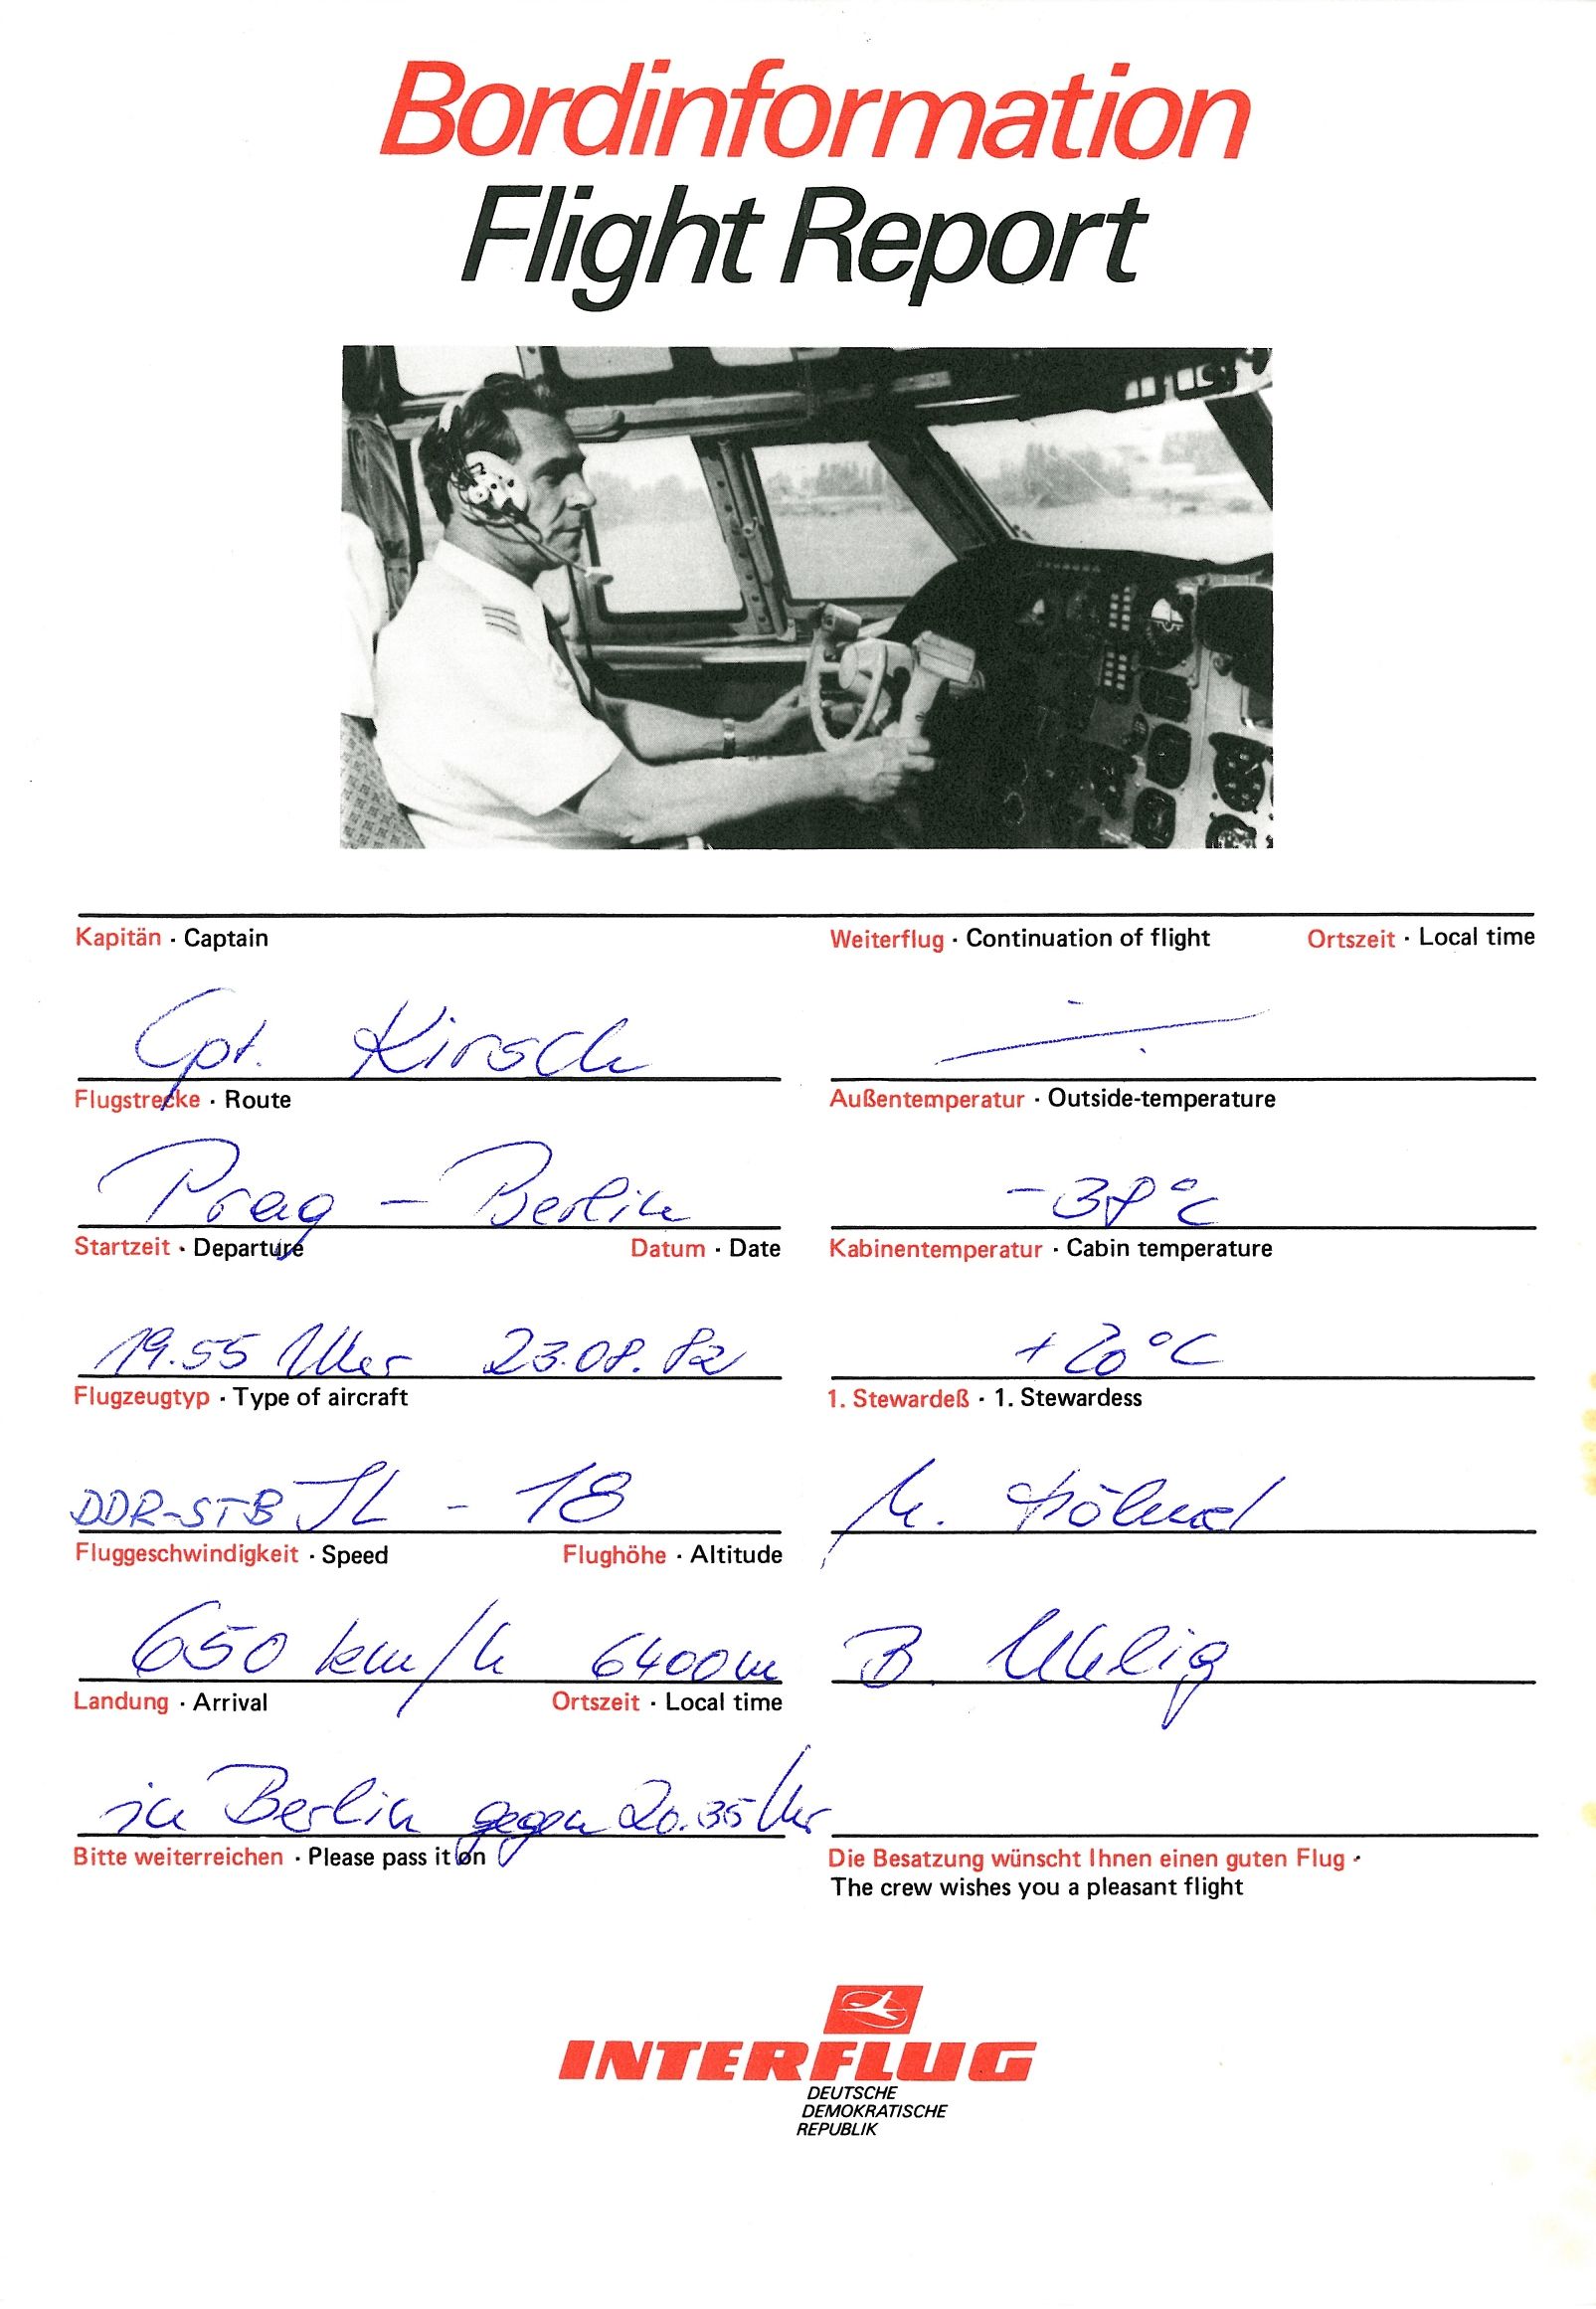 Bordinformation
Flight Report
Kapitän · Captain
Weiterflug · Continuation of flight Ortszeit · Local time
Cpt. Kirsch
Flugstrecke · Route
Außentemperatur · Outside-temperature
Prag – Berlin
-38°C
Startzeit · Departure Datum · Date
Kabinentemperatur · Cabin temperature
19.55 Uhr 23.08.82
+20°C
Flugzeugtyp · Type of aircraft
1. Stewardeß · 1. Stewardess
DDR-STB IL - 18
Fluggeschwindigkeit · Speed Flughöhe · Altitude
650 km/h 6400m
B. Uhlig
Landung · Arrival Ortszeit · Local time
in Berlin gegen 20.35 Uhr
Bitte weiterreichen · Please pass it on
Die Besatzung wünscht Ihnen einen guten Flug ·
The crew wishes you a pleasant flight
INTERFLUG
DEUTSCHE
DEMOKRATISCHE
REPUBLIK